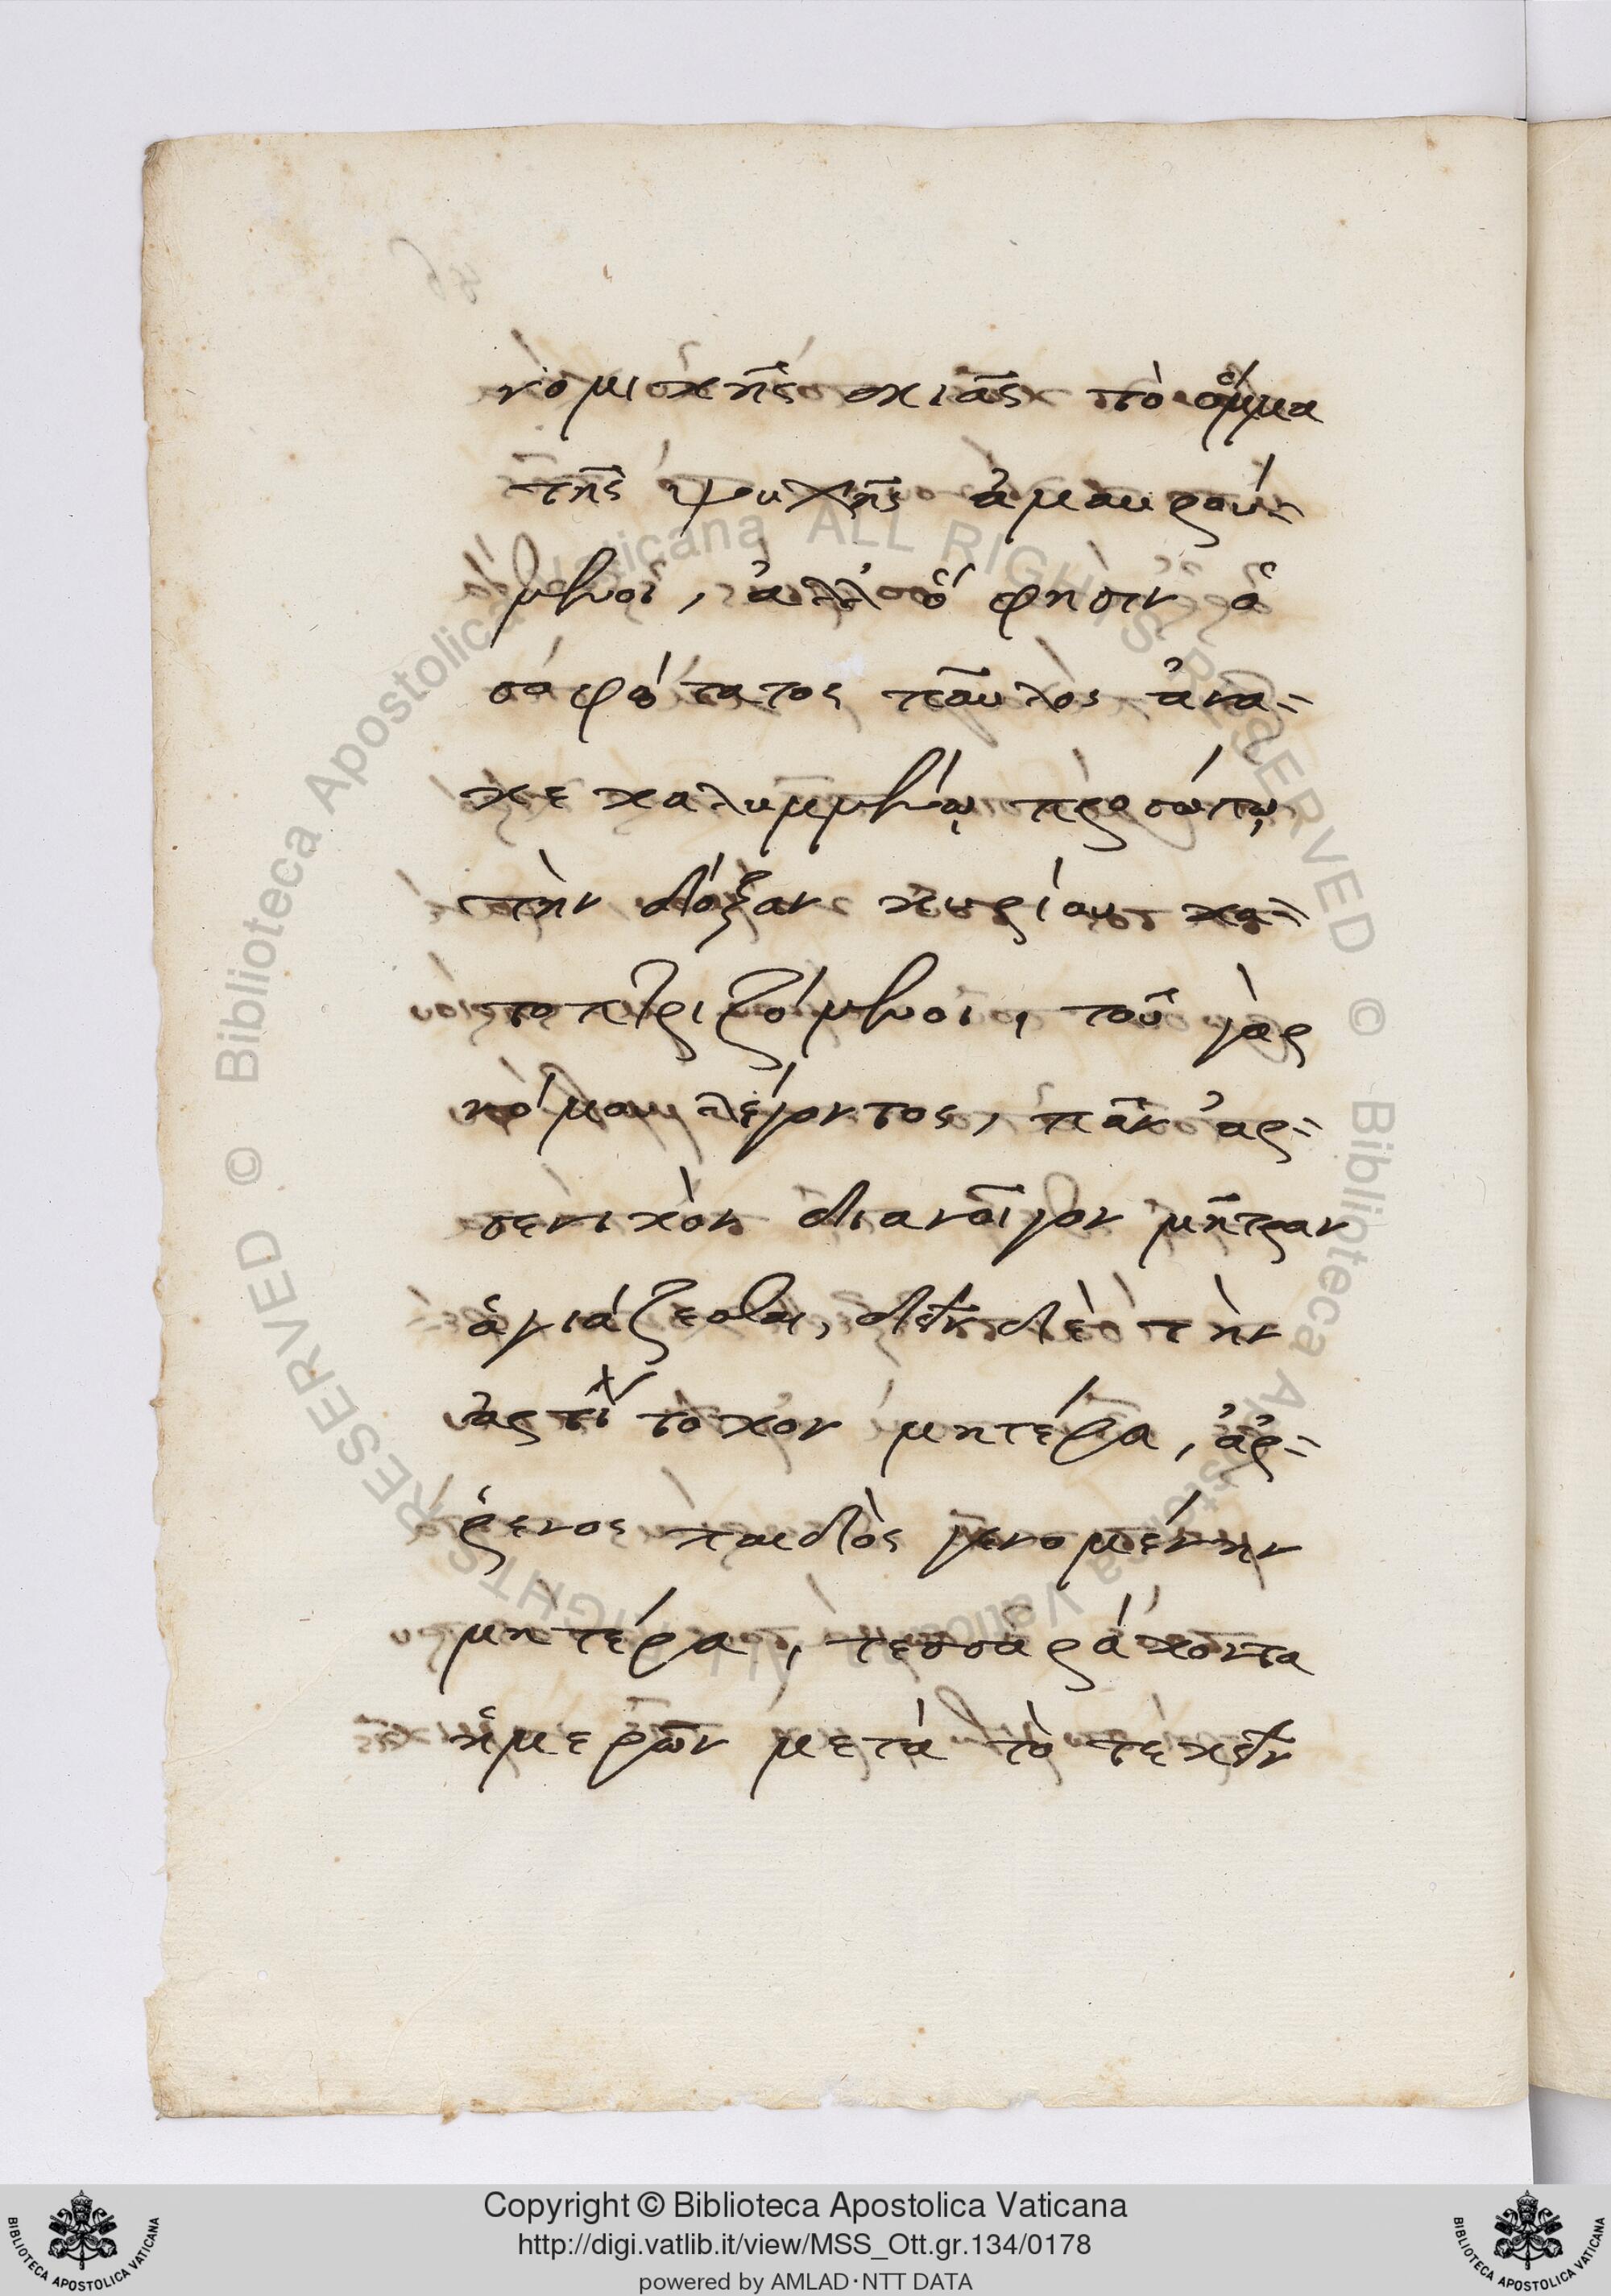 νομικῆς σκιᾶς τὸ ὄμμα
τῆς ψυχῆς ἀμαυρού-
μενοι, ἀλλ' ὅ φησιν ὁ
σοφώτατος παῦλος ἀνα-
κεκαλυμμένῳ προσώπῳ
τὴν δόξαν κυρίου κα-
τοπτριζόμενοι, τοῦ γὰρ
νόμου λέγοντος, πᾶν ἀρ-
σενικὸν διανοῖγον μῆτραν
ἁγιάζεσθαι, δεῖν δὲ τὴν
ἀρτίτοκον μητέρα, ἄρ-
ῥενος παιδὸς γενομένην
μητέρα, τεσσαράκοντα
ἡμερῶν μετὰ τὸ τεκεῖν
Copyright © Biblioteca Apostolica Vaticana
http://digi.vatlib.it/view/MSS_Ott.gr.134/0178
powered by AMLAD·NTT DATA
BIBLIOTECA APOSTOLICA VATICANA
BIBLIOTECA APOSTOLICA VATICANA
© Biblioteca Apostolica Vaticana ALL RIGHTS RESERVED
© Biblioteca Apostolica Vaticana ALL RIGHTS RESERVED